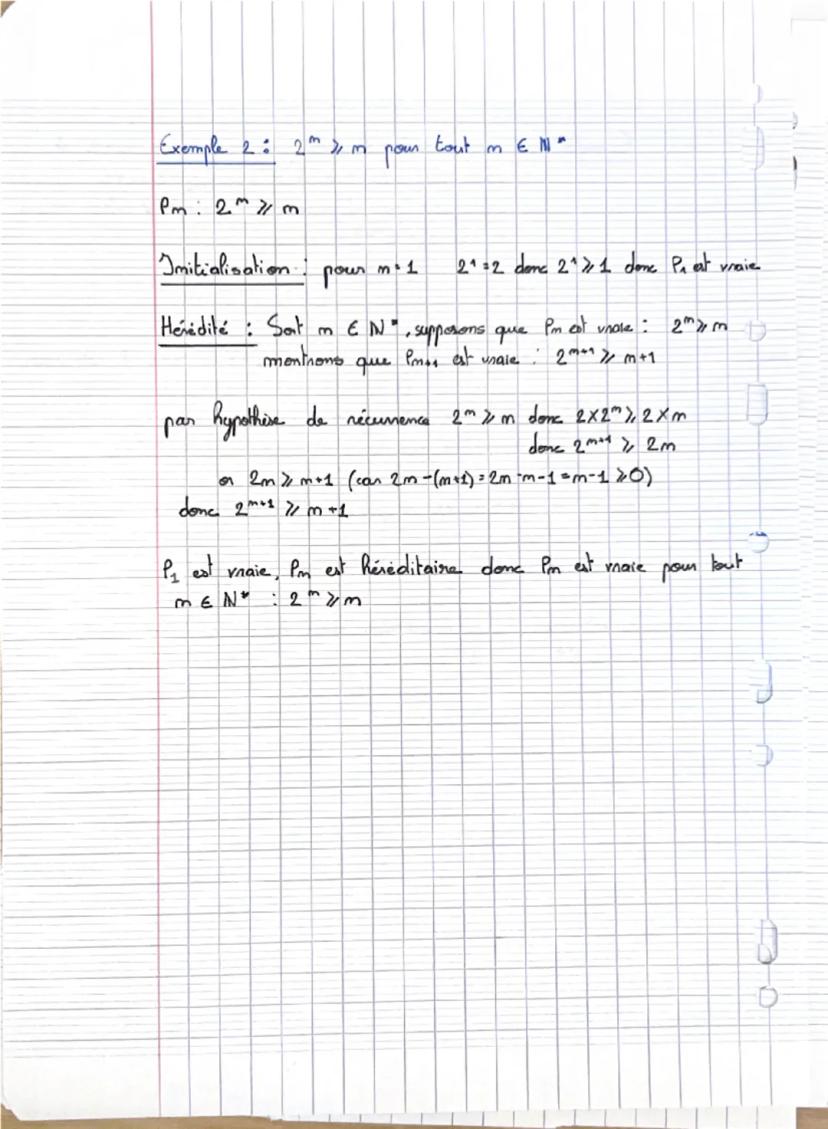 Exemple 2 : 2ⁿ ⩾ n pour tout n ∈ ℕ*
Pn : 2ⁿ ⩾ n
Initialisation : pour n = 1 2¹ = 2 donc 2¹ ⩾ 1 donc P₁ est vraie
Hérédité : Soit n ∈ ℕ*, supposons que Pn est vraie : 2ⁿ ⩾ n
montrons que Pn+1 est vraie : 2ⁿ⁺¹ ⩾ n+1
par hypothèse de récurrence 2ⁿ ⩾ n donc 2×2ⁿ ⩾ 2×n
donc 2ⁿ⁺¹ ⩾ 2n
or 2n ⩾ n+1 (car 2n-(n+1) = 2n-n-1 = n-1 ⩾ 0)
donc 2ⁿ⁺¹ ⩾ n+1
P₁ est vraie, Pn est héréditaire donc Pn est vraie pour tout
n ∈ ℕ* : 2ⁿ ⩾ n